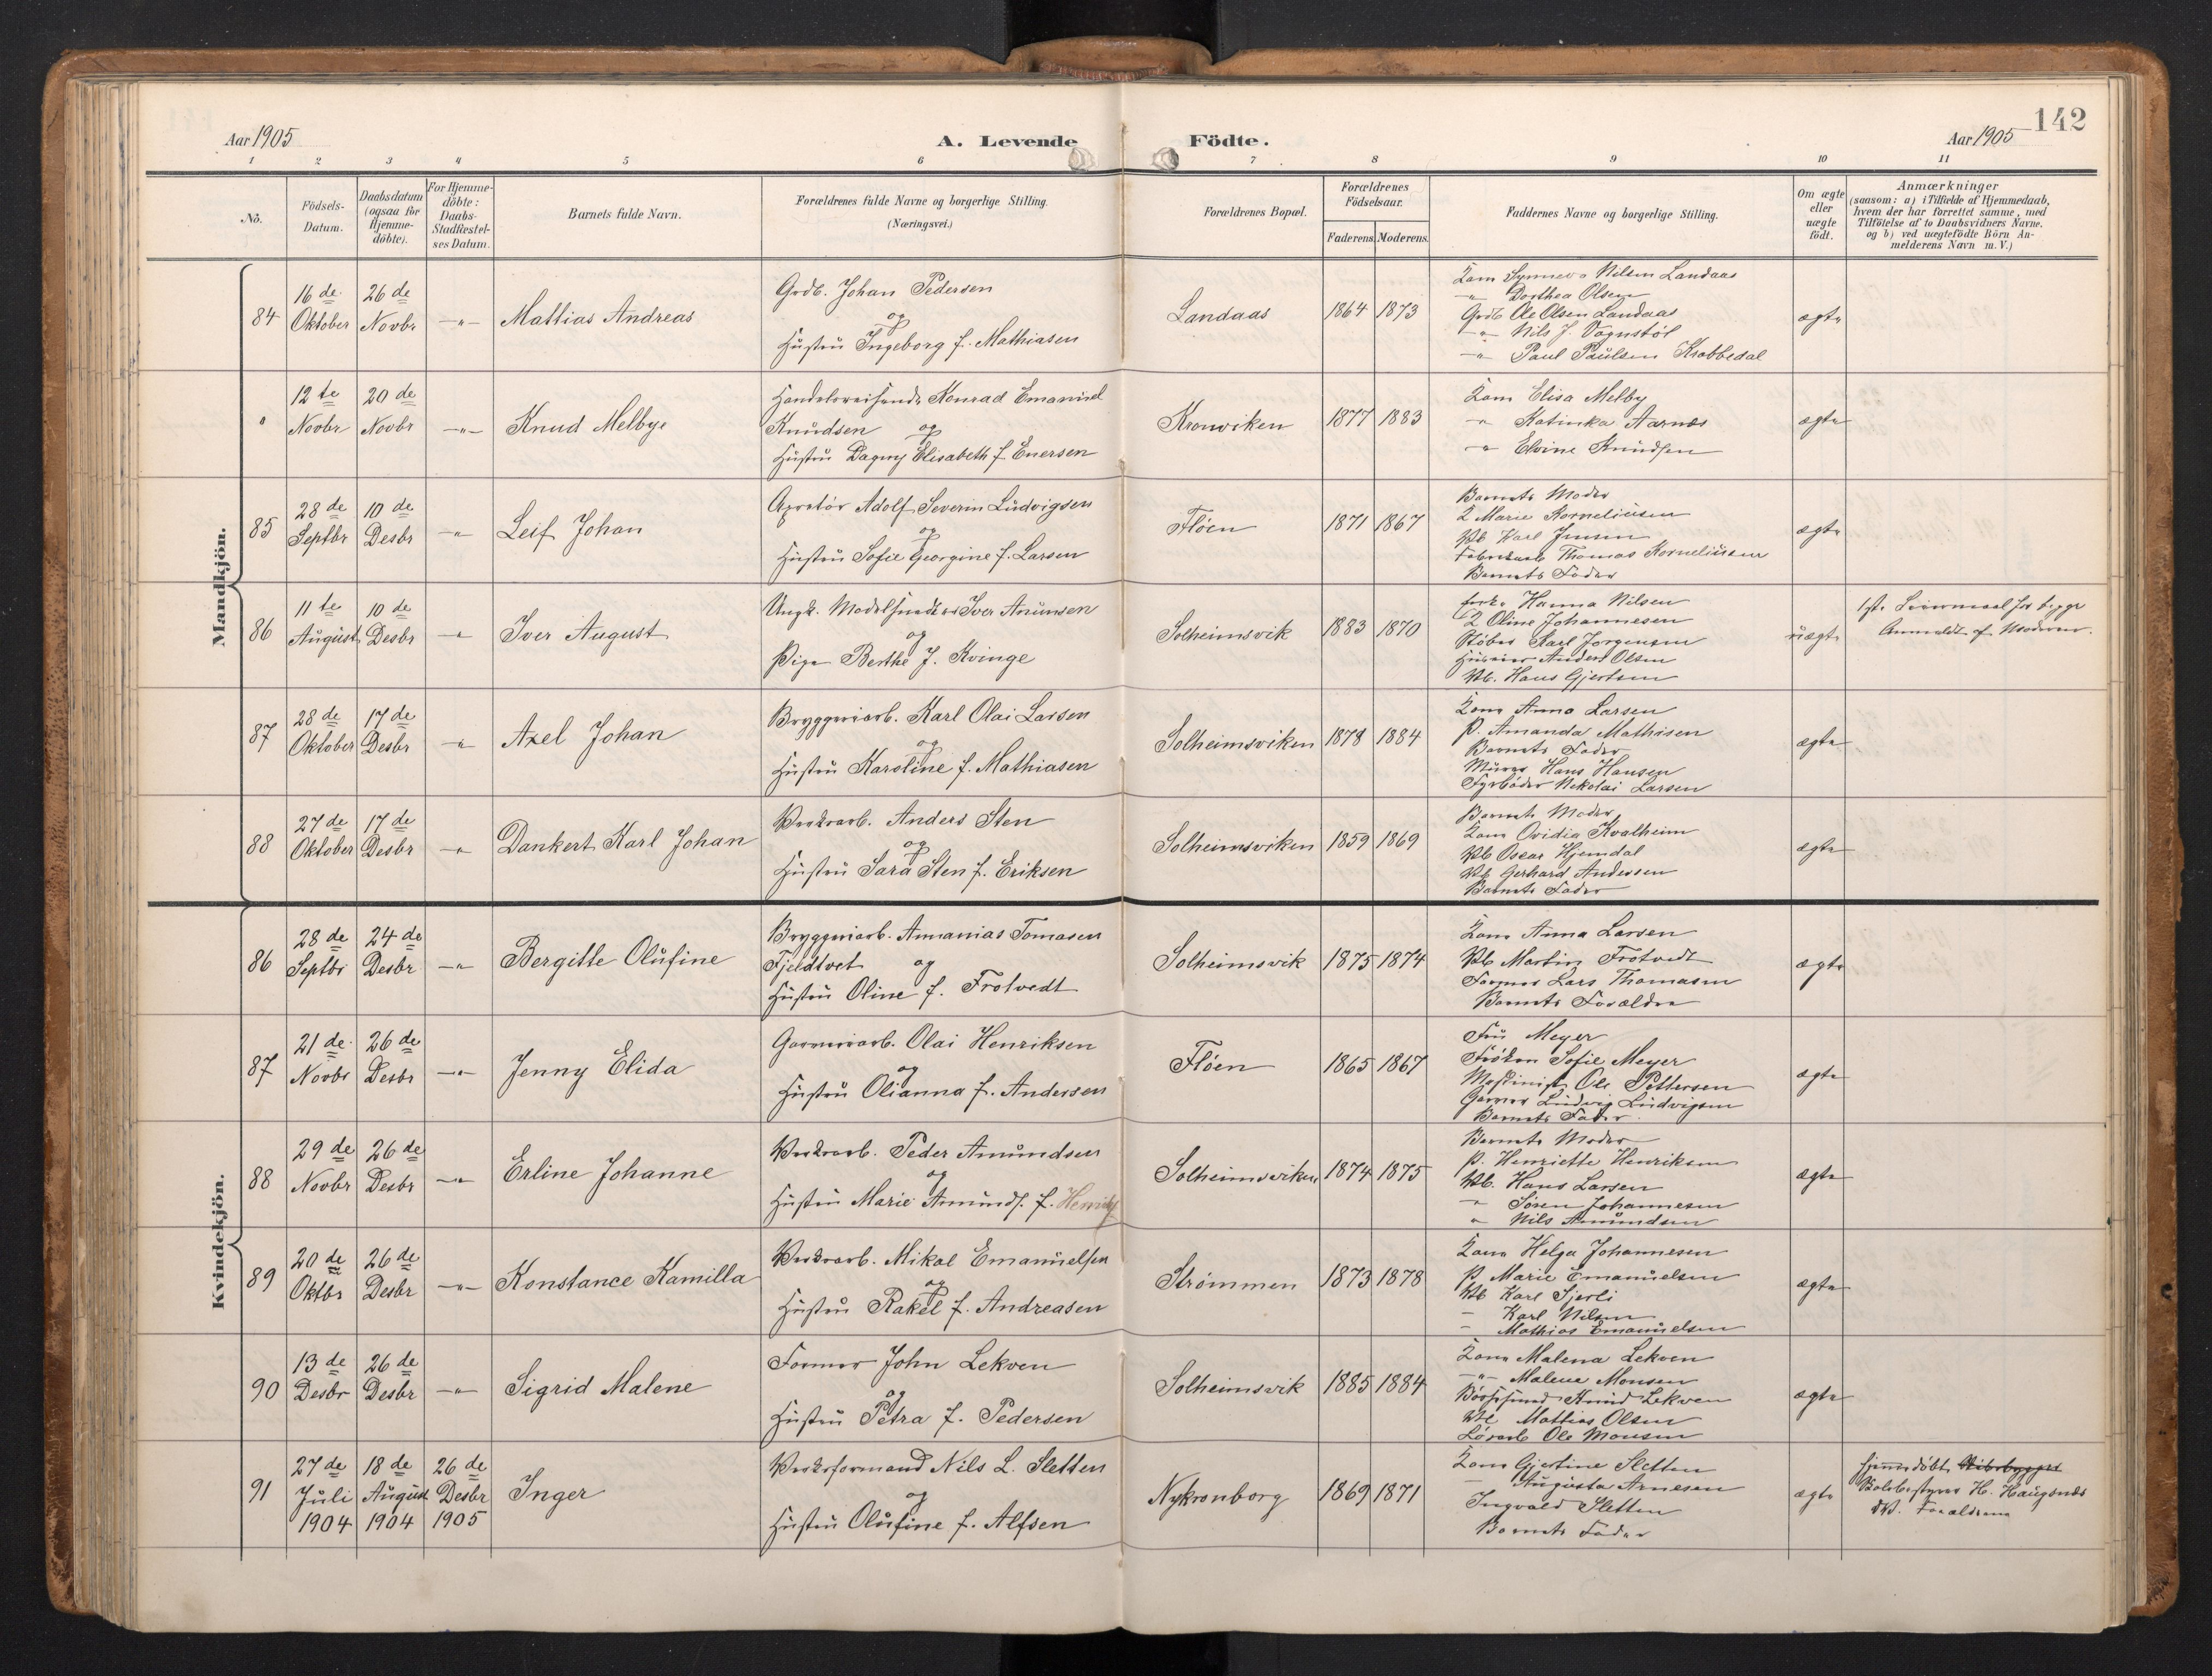 142
Aar 1905
A. Levende Födte.
Aar 1905
1 2 3 4 5 6 7 8 9 10 11
Nô.
Födsels-
Datum.
Daabsdatum
(ogsaa for
Hjemme-
döbte).
For Hjemme-
döbte:
Daabs-
Stadfæstel-
ses Datum.
Barnets fulde Navn.
Forældrenes fulde Navne og borgerlige Stilling.
(Næringsvei.)
Forældrenes Bopæl.
Forældrenes
Födselsaar.
Faderens. Moderens.
Faddernes Navne og borgerlige Stilling.
Om ægte
eller
uægte
födt.
Anmærkninger
(saasom: a) i Tilfælde af Hjemmedaab,
hvem der har forrettet samme, med
Tilföielse af to Daabsvidners Navne.
og b) ved uægtefödte Börn An-
melderens Navn m. V.)
Mandkjön.
84
16de
Oktober
26de
Novbr
-"-
Mattias Andreas
Grdb. Johan Pedersen
og
Hustru Ingeborg f. Mathiasen
Landaas
1864 1873
Kone Synneva Nilsen Landaas
-"- Dorthea Olsen
Grdb Ole Olsen Landaas
-"- Nils J. Vognstöl
-"- Paul Paulsen Krabbedal
ægte
"
12te
Novbr
20de
Novbr
-"-
Knud Melbye
Handelsreisende Konrad Emanuel
Knudsen og
Hustru Dagny Elisabeth f. Enersen
Kronviken
1877 1883
Kone Elisa Melby
-"- Katinka Aarnæs
-"- Elvine Knudsen
ægte
85
28de
Septbr
10de
Desbr
-"-
Leif Johan
Apretör Adolf Severin Ludvigsen
og
Hustru Sofie Georgine f. Larsen
Flöen
1871 1867
Barnets Moder
K Marie Korneliusen
Vb Karl Jensen
Fabrikarb Thomas Korneliusen
Barnets Fader
ægte
86
11te
August
10de
Desbr
-"-
Iver August
Ungk. Modelsnedker Iver Anunsen
og
Pige Berthe J. Kvinge
Solheimsvik
1883 1870
Hanna Nilsen
K Oline Johannesen
Stöber Karl Jorgensen
Anders Olsen
Vb. Hans Gjertsen
uægte
1ste Leiermaal for begge
Anmeldt af Moderen.
87
28de
Oktober
17de
Desbr
-"-
Axel Johan
Bryggeriarb. Karl Olai Larsen
og
Hustru Karoline f. Mathiasen
Solheimsviken
1878 1884
Kone Anna Larsen
P. Amanda Mathisen
Barnets Fader
Murer Hans Hansen
Fyrböder Nikolai Larsen
ægte
88
27de
Oktober
17de
Desbr
-"-
Dankert Karl Johan
Verksarb. Anders Sten
og
Hustru Sara Sten f. Eriksen
Solheimsviken
1859 1869
Barnets Moder
Kone Ovidia Kvalheim
Vb Oscar Hjemdal
Vb Gerhard Andersen
Barnets Fader
ægte
Kvindekjön.
86
28de
Septbr
24de
Desbr
-"-
Bergitte Olufine
Bryggeriarb. Annanias Tomasen
Fjeldtvet og
Hustru Oline f. Frotvedt
Solheimsvik
1875 1874
Kone Anna Larsen
Vb Martin Frotvedt
Former Lars Thomasen
Barnets Forældre
ægte
87
21de
Novbr
26de
Desbr
-"-
Jenny Elida
Garveriarb. Olai Henriksen
og
Hustru Olianna f. Andersen
Flöen
1865 1867
Fru Meyer
Fröken Sofie Meyer
Maskinist Ole Pettersen
Garver Ludvig Ludvigsen
Barnets Fader.
ægte
88
29de
Novbr
26de
Desbr
-"-
Erline Johanne
Verksarb. Peder Amundsen
og
Hustru Marie Amunds. f. Henriks
Solheimsviken
1874 1875
Barnets Moder
P. Henriette Henriksen
Vb. Hans Larsen
" Sören Johannesen
" Nils Amundsen
ægte
89
20de
Oktbr
26de
Desbr
-"-
Konstance Kamilla
Verksarb. Mikal Emanuelsen
og
Hustru Rakel f. Andreasen
Strömmen
1873 1878
Kone Helga Johannesen
P. Marie Emanuelsen
Vb Karl Sjerli
- Karl Nilsen
- Mathias Emanuelsen
ægte
90
13de
Desbr
26de
Desbr
-"-
Sigrid Malene
Former John Lekven
og
Hustru Petra f. Pedersen
Solheimsvik
1885 1884
Kone Malena Lekven
-"- Malene Monsen
Knud Lekven
Mattias Olsen
Ole Monsen
ægte
91
27de
Juli
1904
18de
August
1904
26de
Desbr
1905
Inger
Verksformand Nils L. Sletten
og
Hustru Olufine f. Alfsen
Nykronborg
1869 1871
Kone Gjertine Sletten
- Augusta Arnesen
Ingvald Sletten
Barnets Fader
ægte
Hjemmedöbt Skibsbygger
H. Haugsnæs
DV. Forældrene